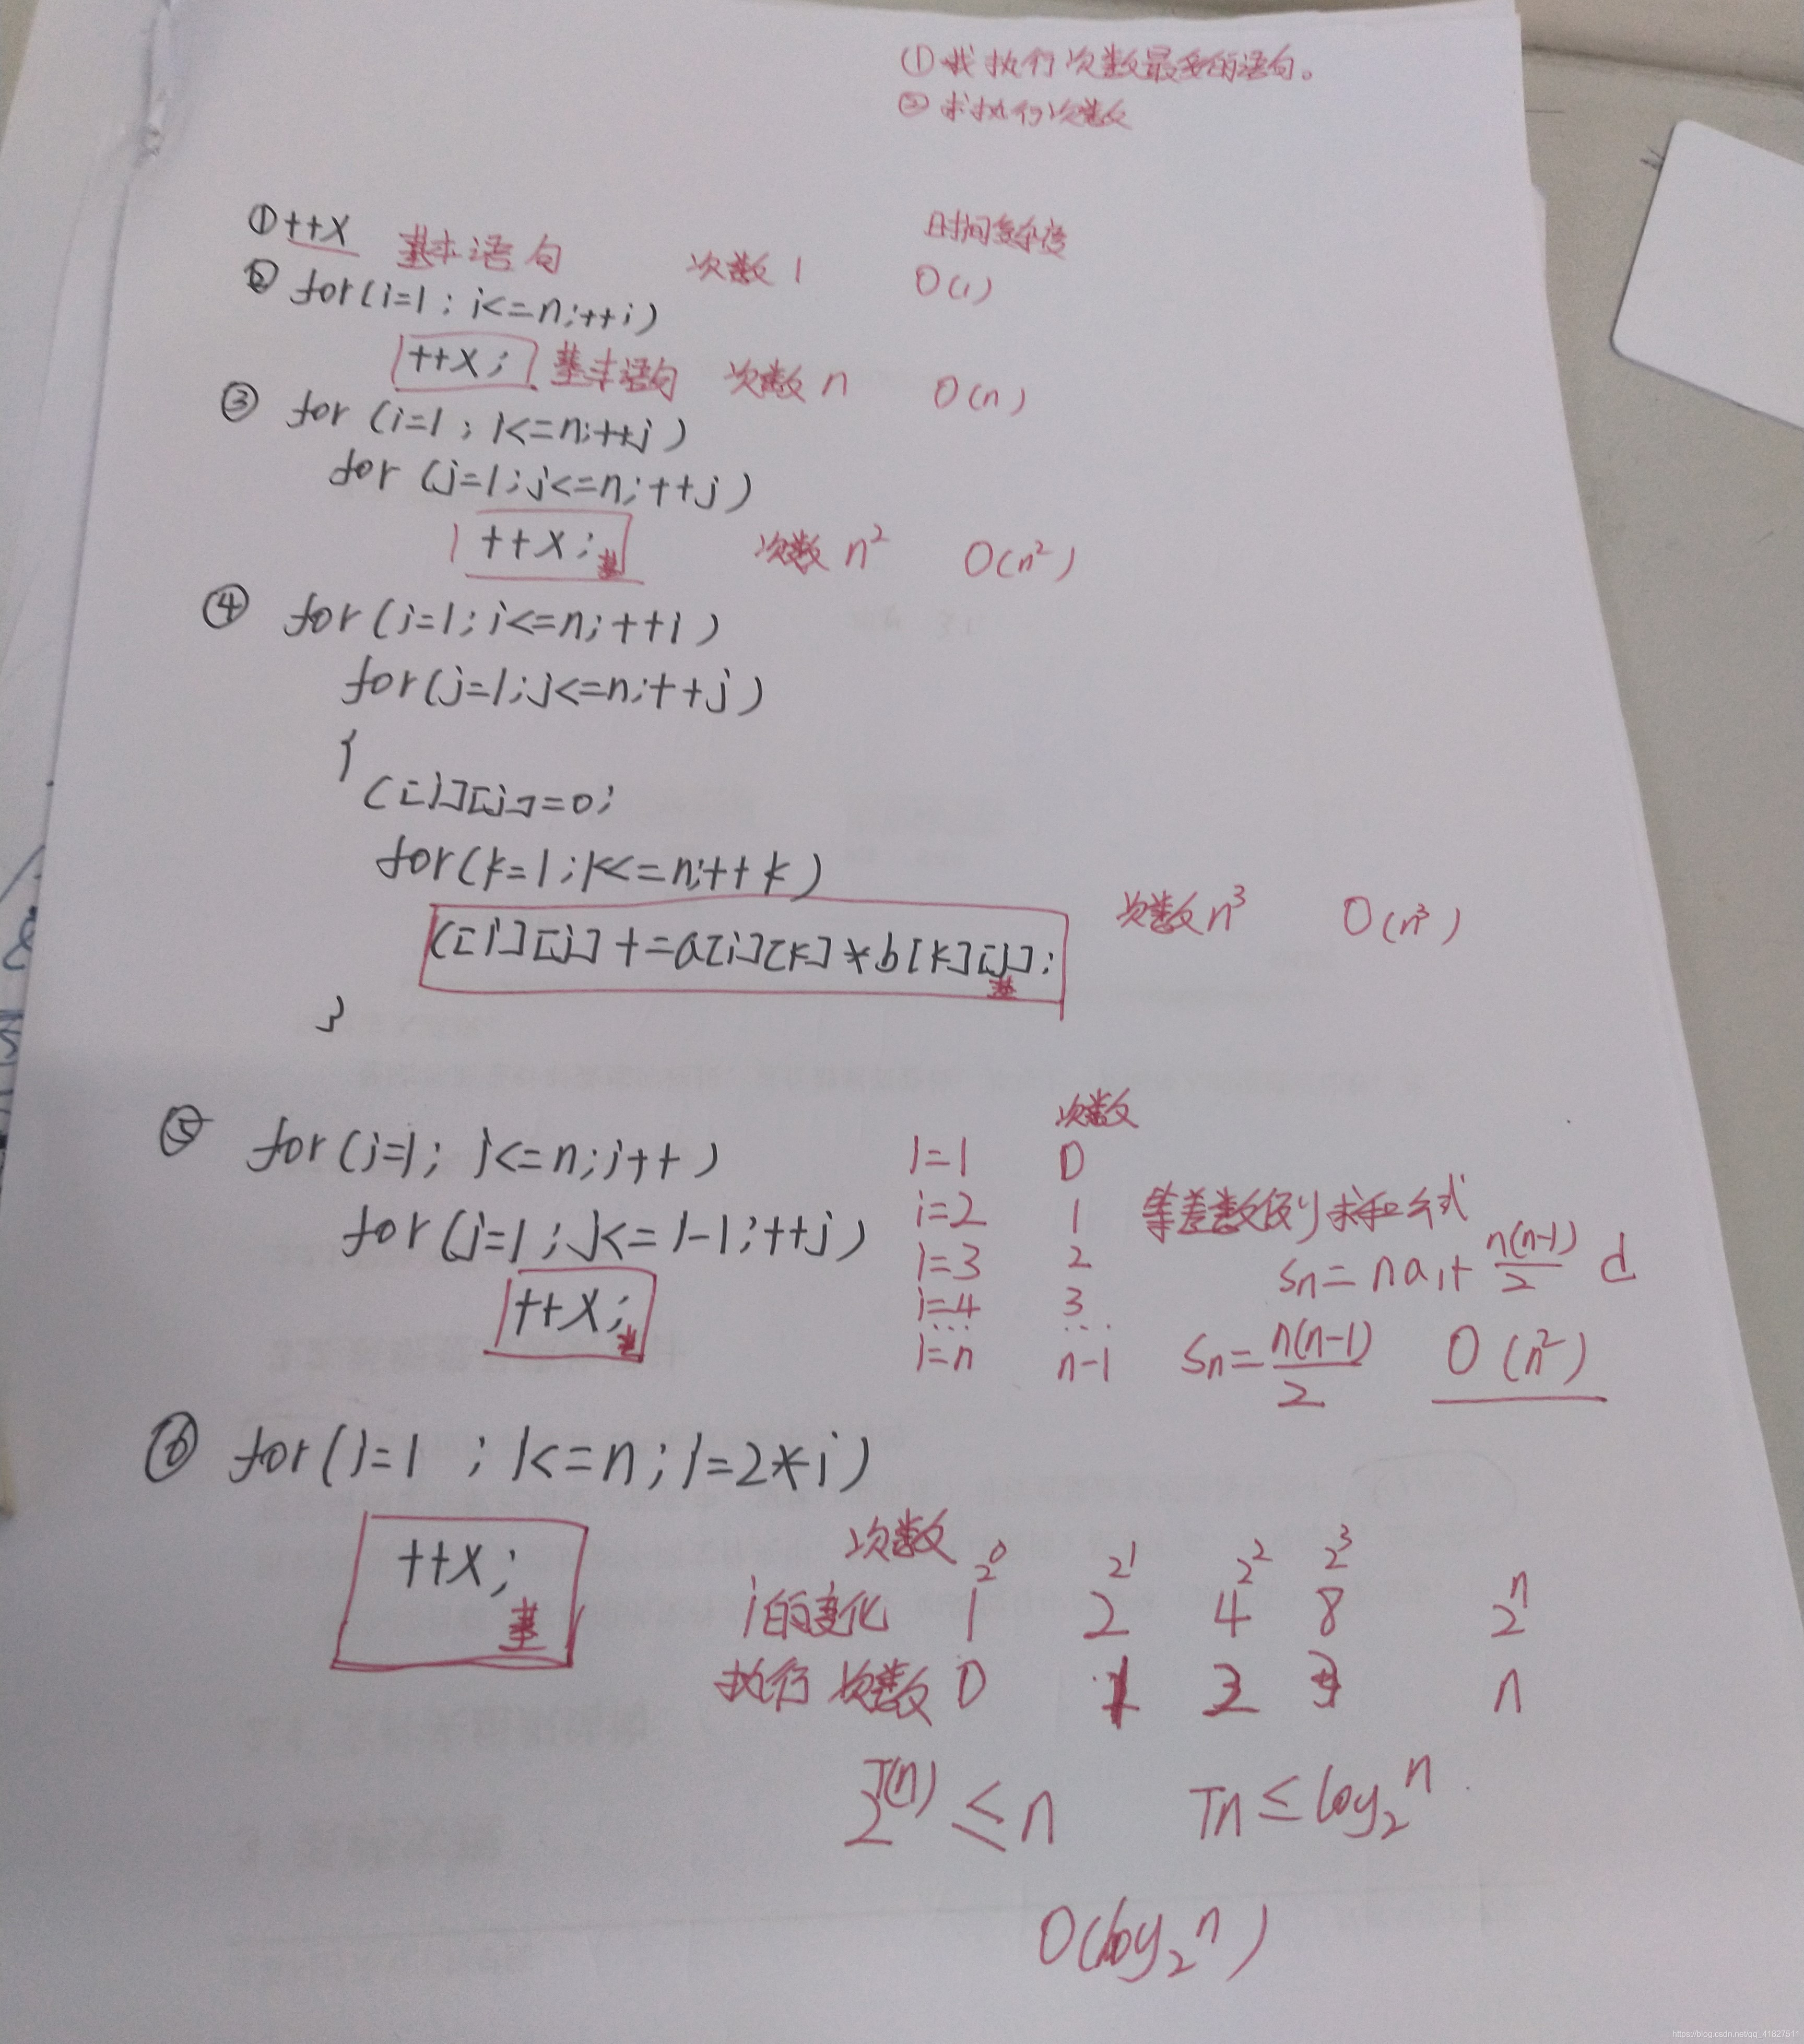 ① 找执行次数最多的语句。
② 求执行次数
①++x 基本语句 次数 1 时间复杂度 O(1)
② for(i=1; i<=n;++i)
++x; 基本语句 次数 n O(n)
③ for (i=1; i<=n;++j)
for (j=1;j<=n;++j)
++x; 基 次数 n² O(n²)
④ for(i=1;i<=n;++i)
for(j=1;j<=n;++j)
{
c[i][j]=0;
for(k=1;k<=n;++k)
c[i][j]+=a[i][k]*b[k][j]; 基 次数 n³ O(n³)
}
⑤ for(i=1; i<=n;i++)
for(j=1;j<=i-1;++j)
++x; 基
次数
i=1 0
i=2 1 等差数列求和公式
i=3 2 Sn=na₁+n(n-1)/2 d
i=4 3
... ...
i=n n-1 Sn=n(n-1)/2 O(n²)
⑥ for(i=1;i<=n;i=2*i)
++x; 基
次数 2⁰ 2¹ 2² 2³
i的变化 1 2 4 8 2ⁿ
执行次数 0 1 2 3 n
2^T(n) ≤ n Tn ≤ log₂ⁿ
O(log₂ⁿ)
https://blog.csdn.net/qq_41827511